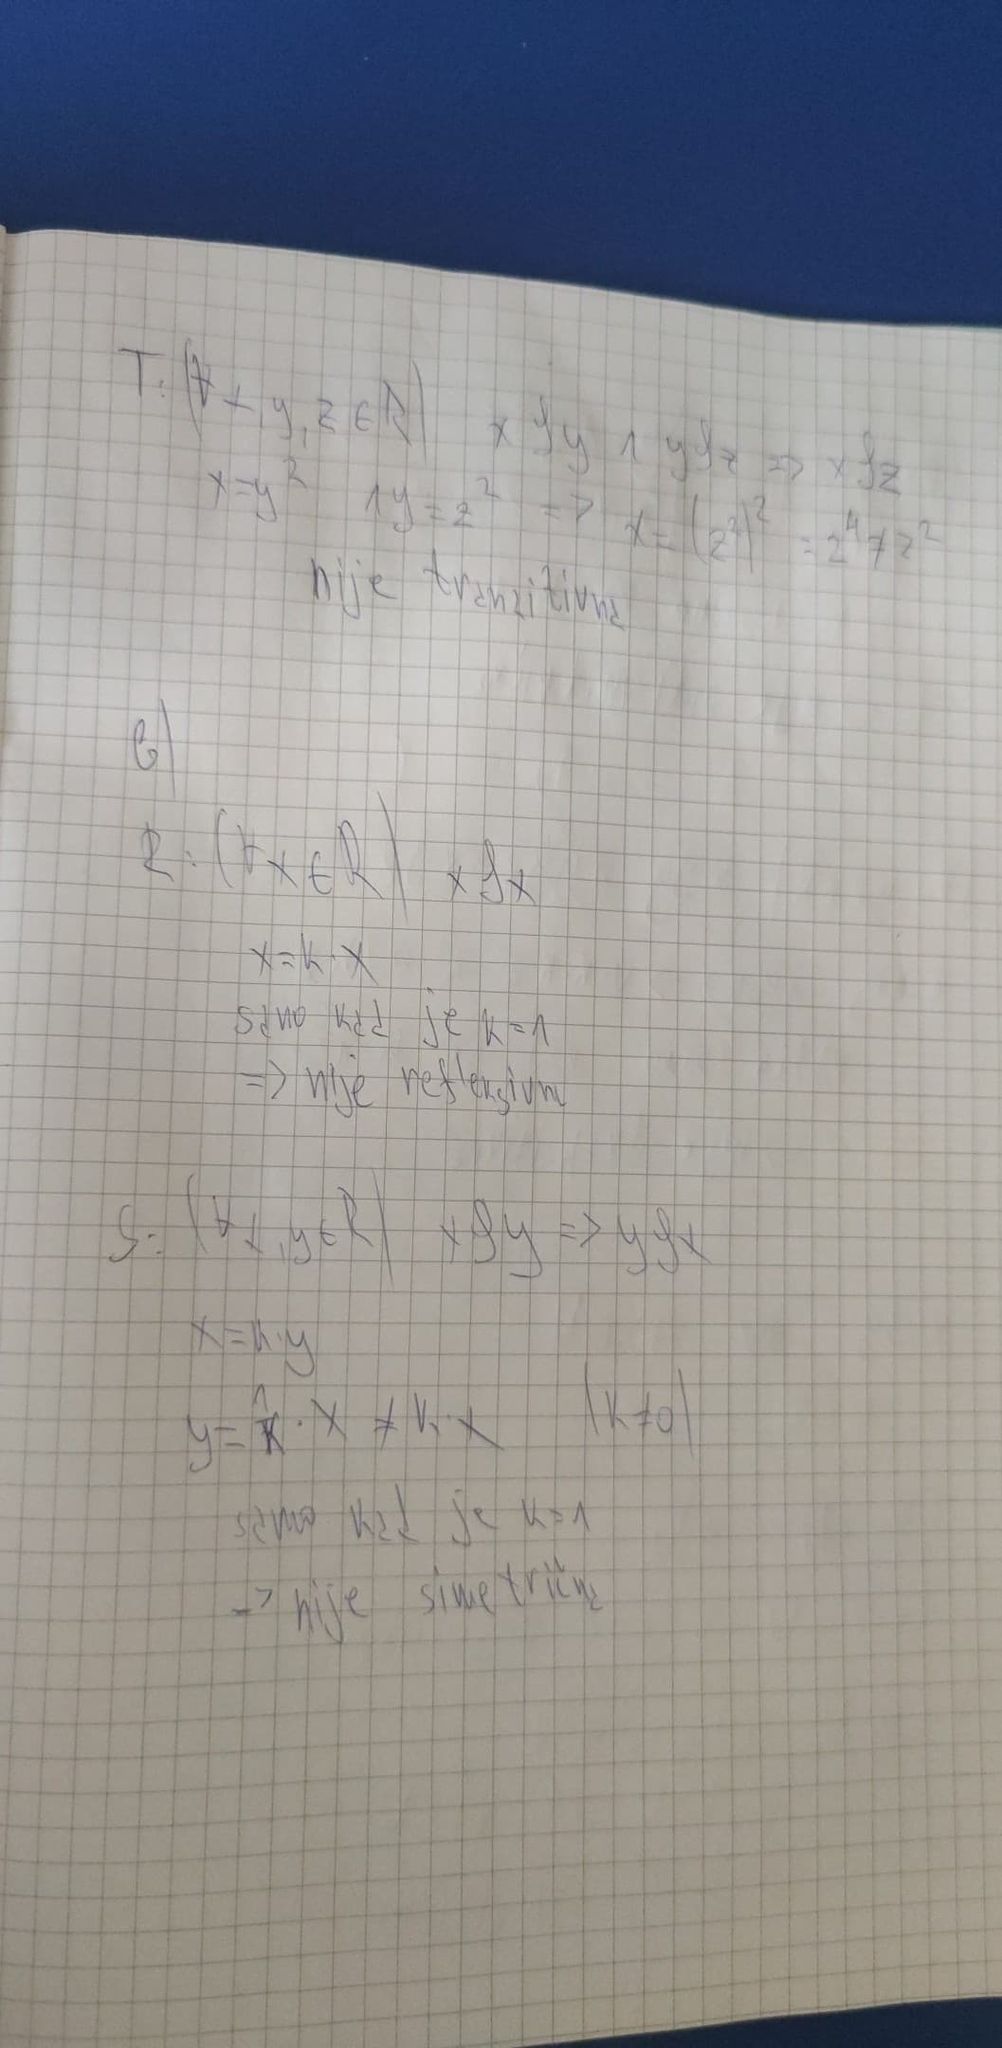 T: (∀x,y,z∈R) xρy ∧ yρz => xρz
x=y² ∧ y=z² => x=(z²)²=z⁴≠z²
nije tranzitivna
b)
R: (∀x∈R) xρx
x=k·x
samo kad je k=1
=> nije refleksivna
S: (∀x,y∈R) xρy => yρx
x=k·y
y=1/k·x≠k·x (k≠0)
samo kad je k=1
=> nije simetrična